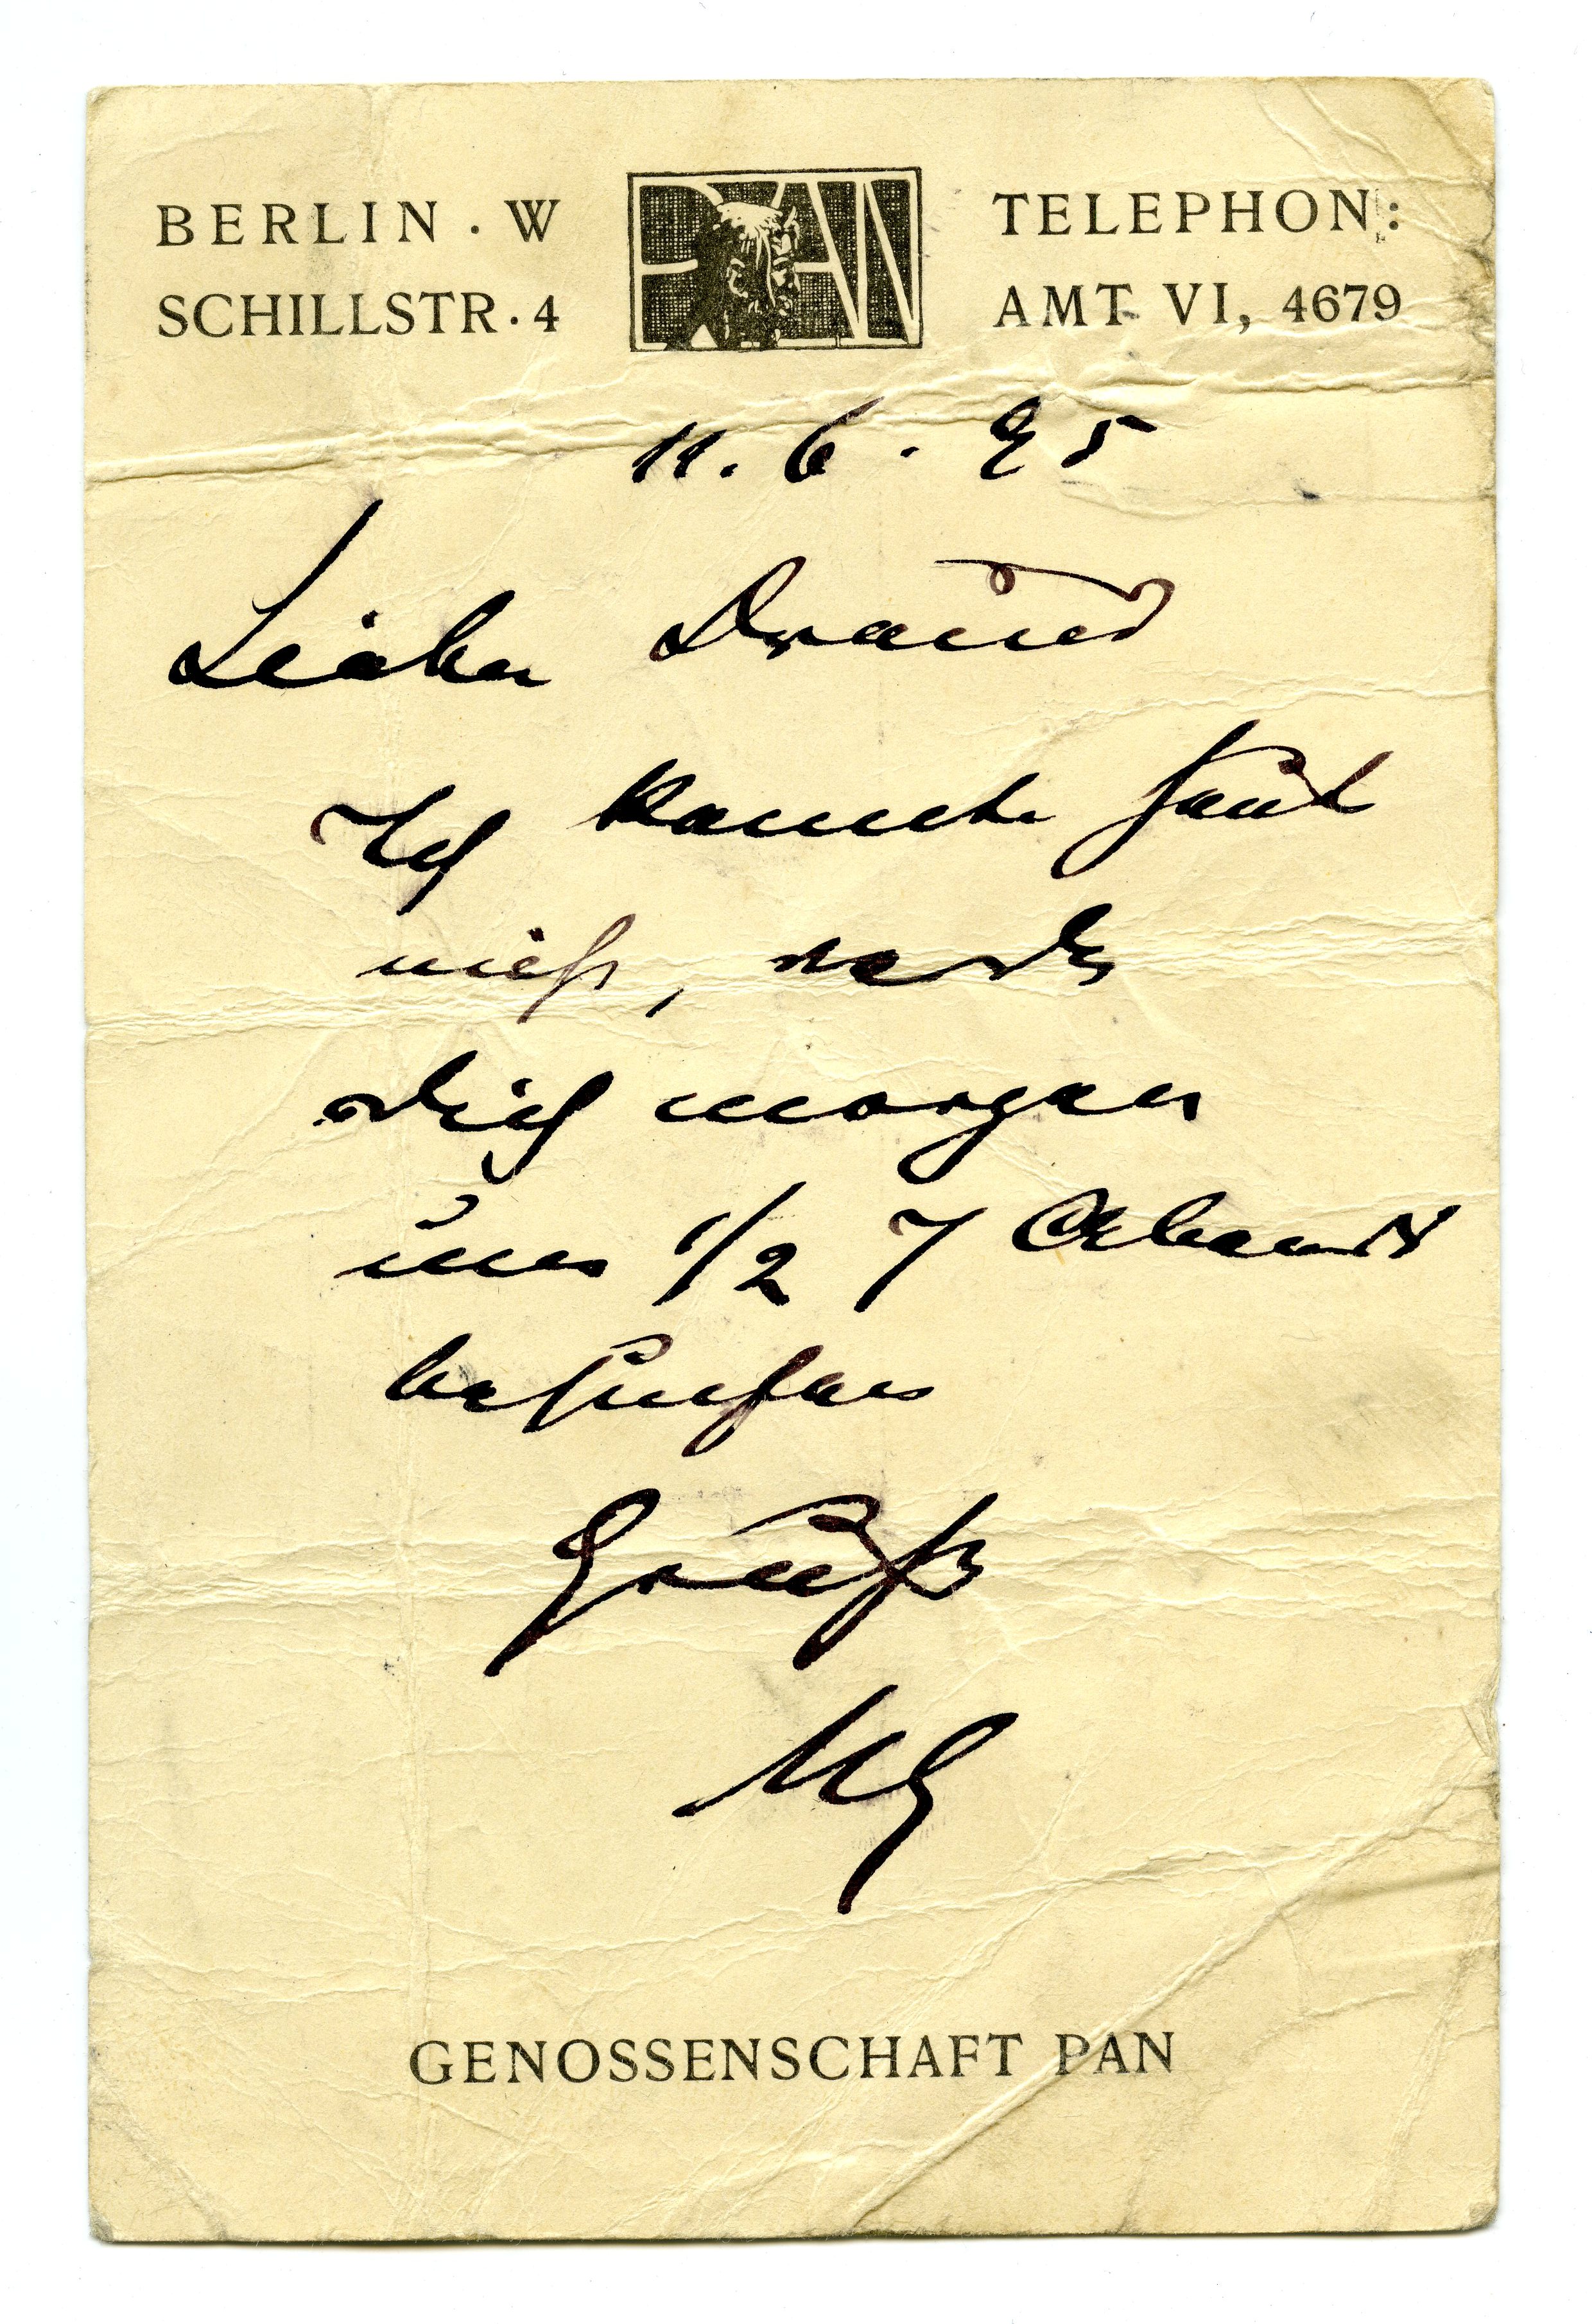 BERLIN · W
SCHILLSTR. 4
PAN
TELEPHON:
AMT VI, 4679
11. 6. 95
Lieber Freund
Ich konnte heut
nicht, werde
dich morgen
um 1/2 7 Abends
besuchen
Gruß
MG
GENOSSENSCHAFT PAN